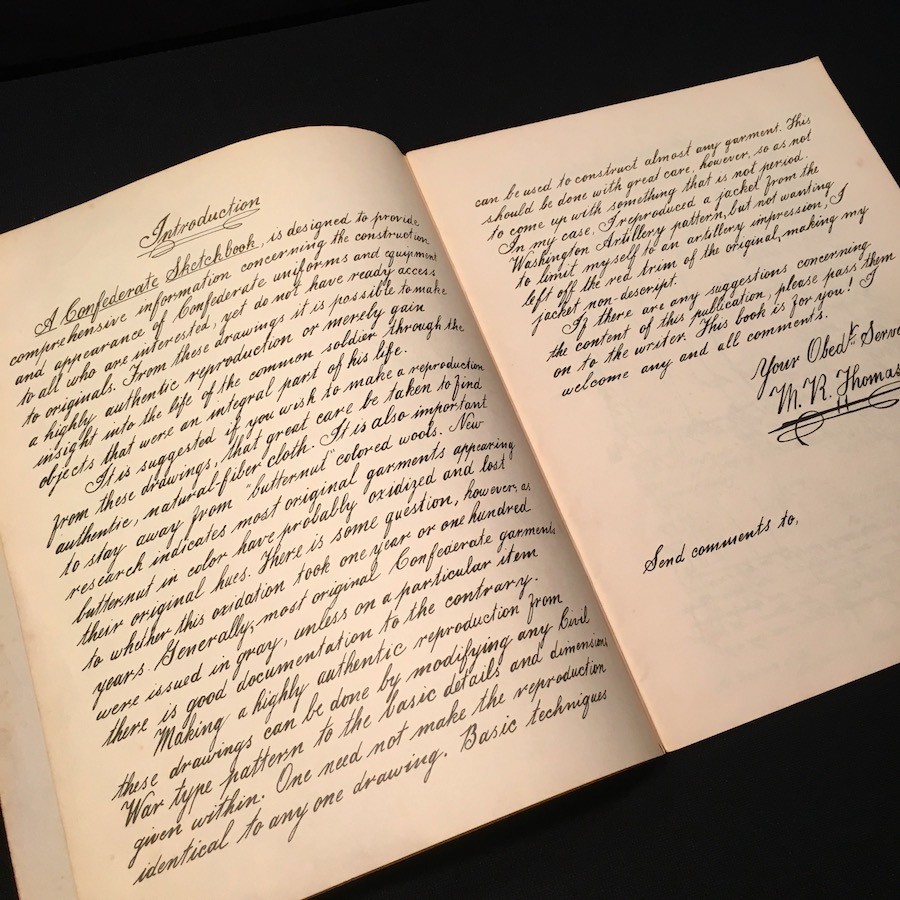 Introduction
A Confederate Sketchbook, is designed to provide
comprehensive information concerning the construction
and appearance of Confederate uniforms and equipment
to all who are interested, yet do not have ready access
to originals. From these drawings it is possible to make
a highly authentic reproduction or merely gain
insight into the life of the common soldier, through the
objects that were an integral part of his life.
It is suggested if you wish to make a reproduction
from these drawings, that great care be taken to find
authentic, natural-fiber cloth. It is also important
to stay away from "butternut" colored wools. New
research indicates most original garments appearing
butternut in color have probably oxidized and lost
their original hues. There is some question, however, as
to whether this oxidation took one year or one hundred
years. Generally, most original Confederate garments
were issued in gray, unless on a particular item
there is good documentation to the contrary.
Making a highly authentic reproduction from
these drawings can be done by modifying any Civil
War type pattern to the basic details and dimensions
given within. One need not make the reproduction
identical to any one drawing. Basic techniques
can be used to construct almost any garment. This
should be done with great care, however, so as not
to come up with something that is not period.
In my case, I reproduced a jacket from the
Washington Artillery pattern, but not wanting
to limit myself to an artillery impression, I
left off the red trim of the original, making my
jacket non-descript.
If there are any suggestions concerning
the content of this publication, please pass them
on to the writer. This book is for you! I
welcome any and all comments.
Your Obedt. Serv
M. R. Thomas
Send comments to,